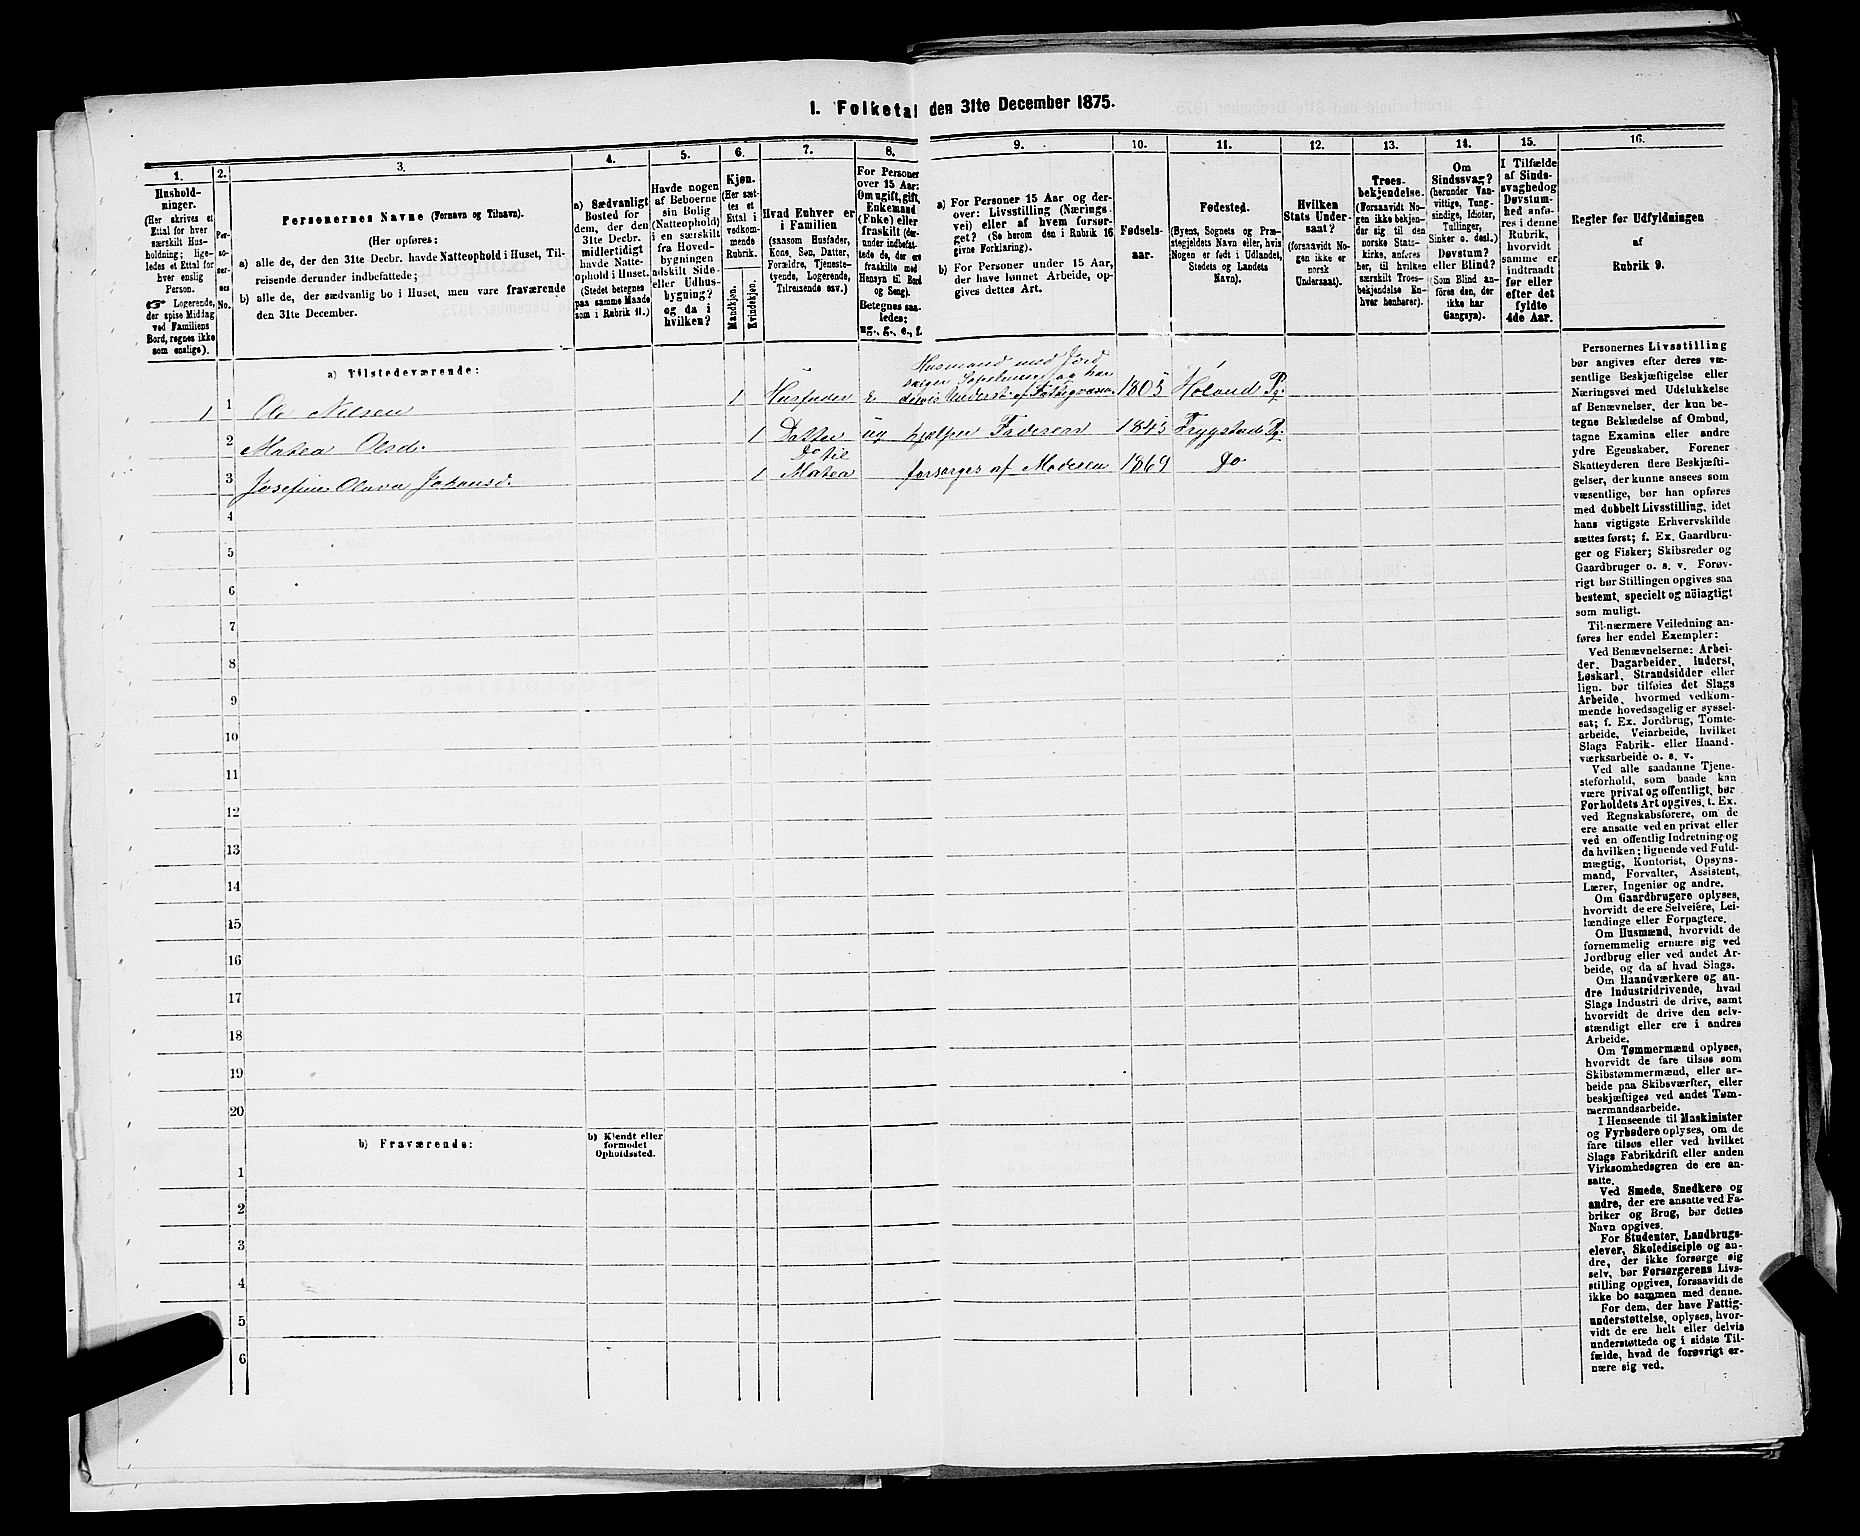 1. Folketal den 31te December 1875.
1.
2.
3.
4.
5.
6.
7.
8.
9.
10.
11.
12.
13.
14.
15.
16.
Hushold-
ninger.
(Her skrives et
Ettal for hver
særskilt Hus-
holdning; lige-
ledes et Ettal for
hver enslig
Person.
☞ Logerende,
der spise Middag
ved Familiens
Bord, regnes ikke
som enslige).
Per-
so-
ner-
nes
No.
Personernes Navne (Fornavn og Tilnavn).
(Her opføres:
a) alle de, der den 31te Decbr. havde Natteophold i Huset, Til-
reisende derunder indbefattede;
b) alle de, der sædvanlig bo i Huset, men vare fraværende
den 31te December.
a) Sædvanligt
Bosted for
dem, der den
31te Decbr.
midlertidigt
havde Natte-
ophold i Huset.
(Stedet betegnes
paa samme Maade
som i Rubrik 11.)
Havde nogen
af Beboerne
sin Bolig
(Natteophold)
i en særskilt
fra Hoved-
bygningen
adskilt Side-
eller Udhus-
bygning?
og da i
hvilken?
Kjøn.
(Her sæt-
tes et
Ettal i
vedkom-
mende
Rubrik.
Mandkjøn.
Kvindekjøn.
Hvad Enhver er
i Familien
(saasom Husfader,
Kone, Søn, Datter,
Forældre, Tjeneste-
tyende, Logerende,
Tilreisende osv.)
For Personer
over 15 Aar:
Om ugift, gift,
Enkemand
(Enke) eller
fraskilt (der-
under indbefat-
tede de, der ere
fraskilte med
Hensyn til Bord
og Seng).
Betegnes saa-
ledes:
ug., g., e., f.
a) For Personer 15 Aar og der-
over: Livsstilling (Nærings-
vei) eller af hvem forsør-
get? (Se herom den i Rubrik 16
givne Forklaring).
b) For Personer under 15 Aar,
der have lønnet Arbeide, op-
gives dettes Art.
Fødsels-
aar.
Fødested.
(Byens, Sognets og Præ-
stegjeldets Navn eller, hvis
Nogen er født i Udlandet,
Stedets og Landets
Navn).
Hvilken
Stats Under-
saat?
(forsaavidt No-
gen ikke er
norsk
Undersaat).
Troes-
bekjendelse.
(Forsaavidt No-
gen ikke bekjen-
der sig til den
norske Stats-
kirke, anføres
her, til hvilken
særskilt Troes-
bekjendelse En-
hver henhører).
Om
Sindssvag?
(herunder Van-
vittige, Tung-
sindige, Idioter,
Tullinger,
Sinker o. desl.)
Døvstum?
eller Blind?
(Som Blind an-
føres den, der
ikke har
Gangsyn).
I Tilfælde
af Sinds-
svaghed og
Døvstum-
hed anfø-
res i denne
Rubrik,
hvorvidt
samme er
indtraadt
før eller
efter det
fyldte
4de Aar.
Regler for Udfyldningen
af
Rubrik 9.
a) Tilstedeværende:
1 1 Ole Nilsen 1 Husfader e. Husmand med Jord
og har
delvis Underst. af Fattigvæsen 1805 Høland Pg.
2 Matea Olsd. 1 Datter ug hjelper Faderen 1845 Trygstad Pg.
3 Josefine Olava Johansd. 1 Do til
Matea forsørges af Moderen 1869 Do
4
5
6
7
8
9
10
11
12
13
14
15
16
17
18
19
20
b) Fraværende:
b) Kjendt eller
formodet
Opholdssted.
1
2
3
4
5
6
Personernes Livsstilling
bør angives efter deres væ-
sentlige Beskjæftigelse eller
Næringsvei med Udelukkelse
af Benævnelser, der kun be-
tegne Beklædelse af Ombud,
tagne Examina eller andre
ydre Egenskaber. Forener
Skatteyderen flere Beskjæfti-
gelser, der kunne ansees som
væsentlige, bør han opføres
med dobbelt Livsstilling, idet
hans vigtigste Erhvervskilde
sættes først; f. Ex. Gaardbru-
ger og Fisker; Skibsreder og
Gaardbruger o. s. v. Forøv-
rigt bør Stillingen opgives saa
bestemt, specielt og nöiagtigt
som muligt.
Til nærmere Veiledning an-
føres her endel Exempler:
Ved Benævnelserne: Arbei-
der, Dagarbeider, Inderst,
Løskarl, Strandsidder eller
lign. bør tilføies det Slags
Arbeide, hvormed vedkom-
mende hovedsagelig er syssel-
sat; f. Ex. Jordbrug, Tomte-
arbeide, Veiarbeide, hvilket
Slags Fabrik- eller Haand-
værksarbeide o. s. v.
Ved alle saadanne Tjene-
steforhold, som baade kan
være privat og offentligt, bør
Forholdets Art opgives, t. Ex.
ved Regnskabsførere, om de
ere ansatte ved en privat eller
ved en offentlig Indretning og
da hvilken; lignende ved Fuld-
mægtig, Kontorist, Opsyns-
mand, Forvalter, Assistent,
Lærer, Ingeniør og andre.
Om Gaardbrugere oplyses,
hvorvidt de ere Selveiére, Lei-
lændinge eller Forpagtere.
Om Husmænd, hvorvidt de
fornemmelig ernære sig ved
Jordbrug eller ved andet Ar-
beide, og da af hvad Slags.
Om Haandværkere og an-
dre Industridrivende, hvad
Slags Industri de drive, samt
hvorvidt de drive den selv-
stændigt eller ere i andres
Arbeide.
Om Tømmermænd oplyses,
hvorvidt de fare tilsøs som
Skibstømmermænd, eller ar-
beide paa Skibsværfter, eller
beskjæftiges ved andet Tøm-
mermandsarbeide.
I Henseende til Maskinister
og Fyrbødere oplyses, om de
fare tilsøs eller ved hvilket
Slags Fabrikdrift eller anden
Virksomhedsgren de ere an-
satte.
Ved Smede, Snedkere og
andre, der ere ansatte ved Fa-
briker og Brug, bør dettes
Navn opgives.
For Studenter, Landbrugs-
elever, Skoledisciple og an-
dre, der ikke forsørge sig
selv, bør Forsørgerens Livs-
stilling opgives, forsaavidt de
ikke bo sammen med denne.
For dem, der have Fattig-
understøttelse, oplyses, hvor-
vidt de ere helt eller delvis
understøttede og i sidste Til-
fælde, hvad de forøvrigt er-
nære sig ved.